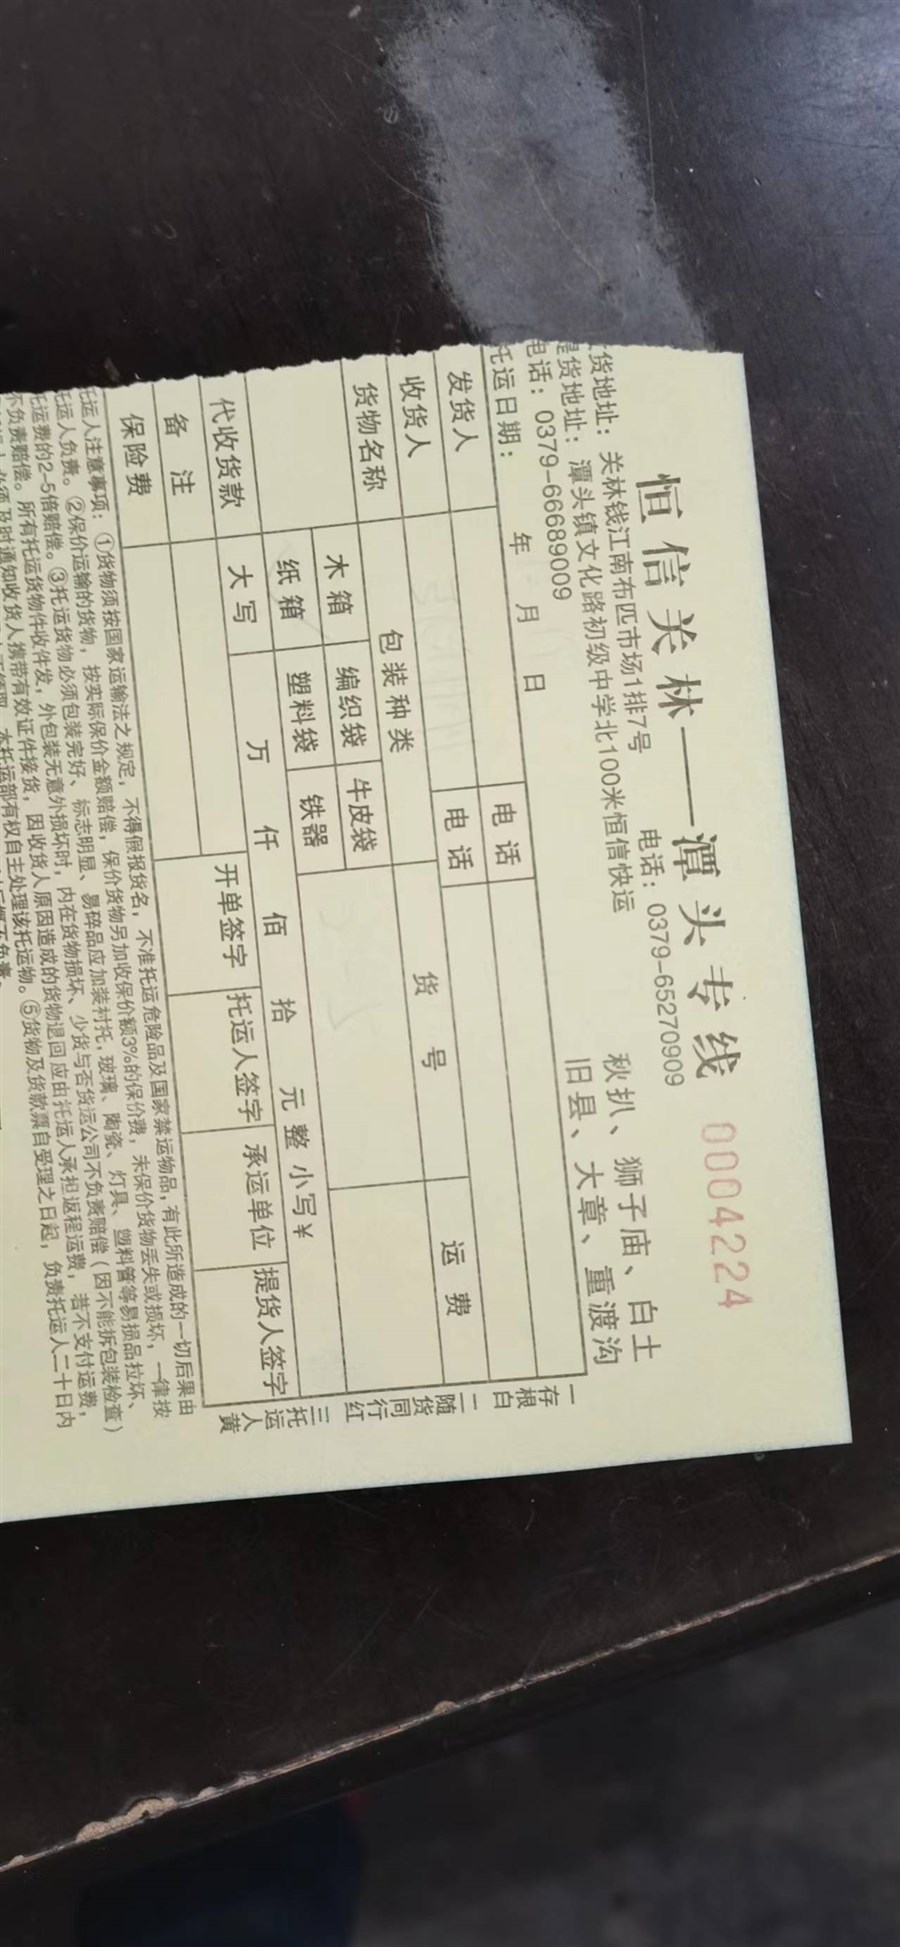 恒信关林——潭头专线 00042​24
货地址：关林钱江南布匹市场1排7号 电话：0379-65270909
提货地址：潭头镇文化路初级中学北100米恒信快运
电话：0379-66689009
秋扒、狮子庙、白土
旧县、大章、重渡沟
托运日期： 年 月 日
发货人 电话
收货人 电话
货物名称 包装种类 货号 运费
木箱 编织袋 牛皮袋
纸箱 塑料袋 铁器
代收货款 大写 万 仟 佰 拾 元整 小写¥
备注 开单签字 托运人签字 承运单位 提货人签字
保险费
一存根白 二随货同行红 三托运人黄
托运人注意事项：①货物须按国家运输法之规定，不得假报货名，不准托运危险品及国家禁运物品，有此所造成的一切后果由
托运人负责。②保价运输的货物，按实际保价金额赔偿，保价货物另加收保价额3%的保价费，未保价货物丢失或损坏，一律按
托运费的2-5倍赔偿。③托运货物必须包装完好、标志明显、易碎品应加装衬托，玻璃、陶瓷、灯具、塑料管等易损品拉坏、
不负责赔偿。所有托运货物件收件发，外包装无意外损坏时，内在货物损坏、少货与否货运公司不负责赔偿（因不能拆包装检查）
必须及时通知收货人携带有效证件接货，因收货人原因造成的货物退回应由托运人承担返程运费，若不支付运费，
本托运部有权自主处理该托运物。⑤货物及货款票自受理之日起，负责托运人二十日内